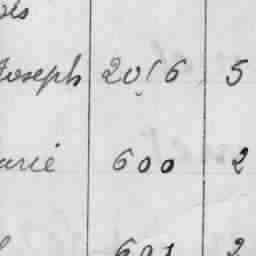 Joseph 2016 5
arie 600 2
601 2